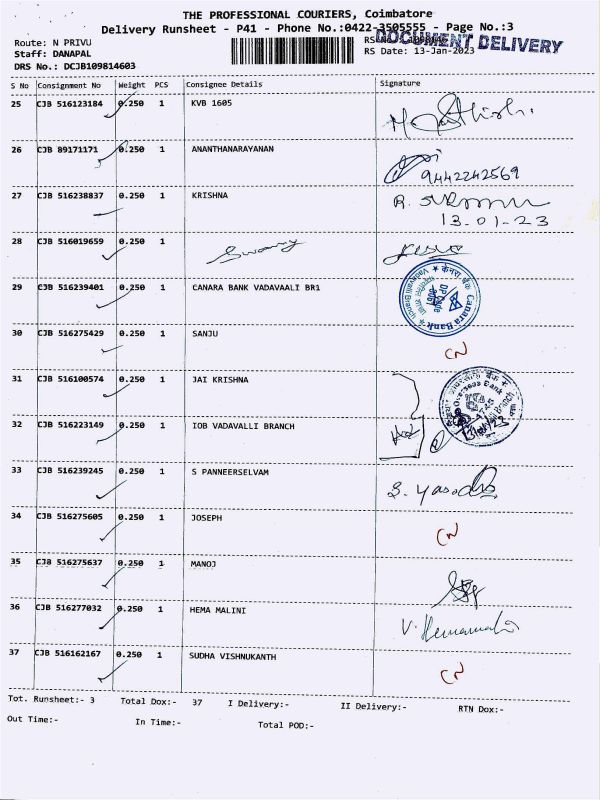 THE PROFESSIONAL COURIERS, Coimbatore
Delivery Runsheet - P41 - Phone No.:0422-3505555 - Page No.:3
Route: N PRIVU
Staff: DANAPAL
DRS No.: DCJB109814603
DOCUMENT DELIVERY
RS Date: 13-Jan-2023
S No Consignment No Weight PCS Consignee Details Signature
25 CJB 516123184 0.250 1 KVB 1605
26 CJB 89171171 0.250 1 ANANTHANARAYANAN
9442242569
27 CJB 516238837 0.250 1 KRISHNA
13-01-23
28 CJB 516019659 0.250 1 Swamy
29 CJB 516239401 0.250 1 CANARA BANK VADAVAALI BR1
Canara Bank
30 CJB 516275429 0.250 1 SANJU CN
31 CJB 516100574 0.250 1 JAI KRISHNA
Overseas Bank
32 CJB 516223149 0.250 1 IOB VADAVALLI BRANCH
33 CJB 516239245 0.250 1 S PANNEERSELVAM
34 CJB 516275605 0.250 1 JOSEPH CN
35 CJB 516275637 0.250 1 MANOJ
36 CJB 516277032 0.250 1 HEMA MALINI
37 CJB 516162167 0.250 1 SUDHA VISHNUKANTH CN
Tot. Runsheet:- 3 Total Dox:- 37 I Delivery:- II Delivery:- RTN Dox:-
Out Time:- In Time:- Total POD:-